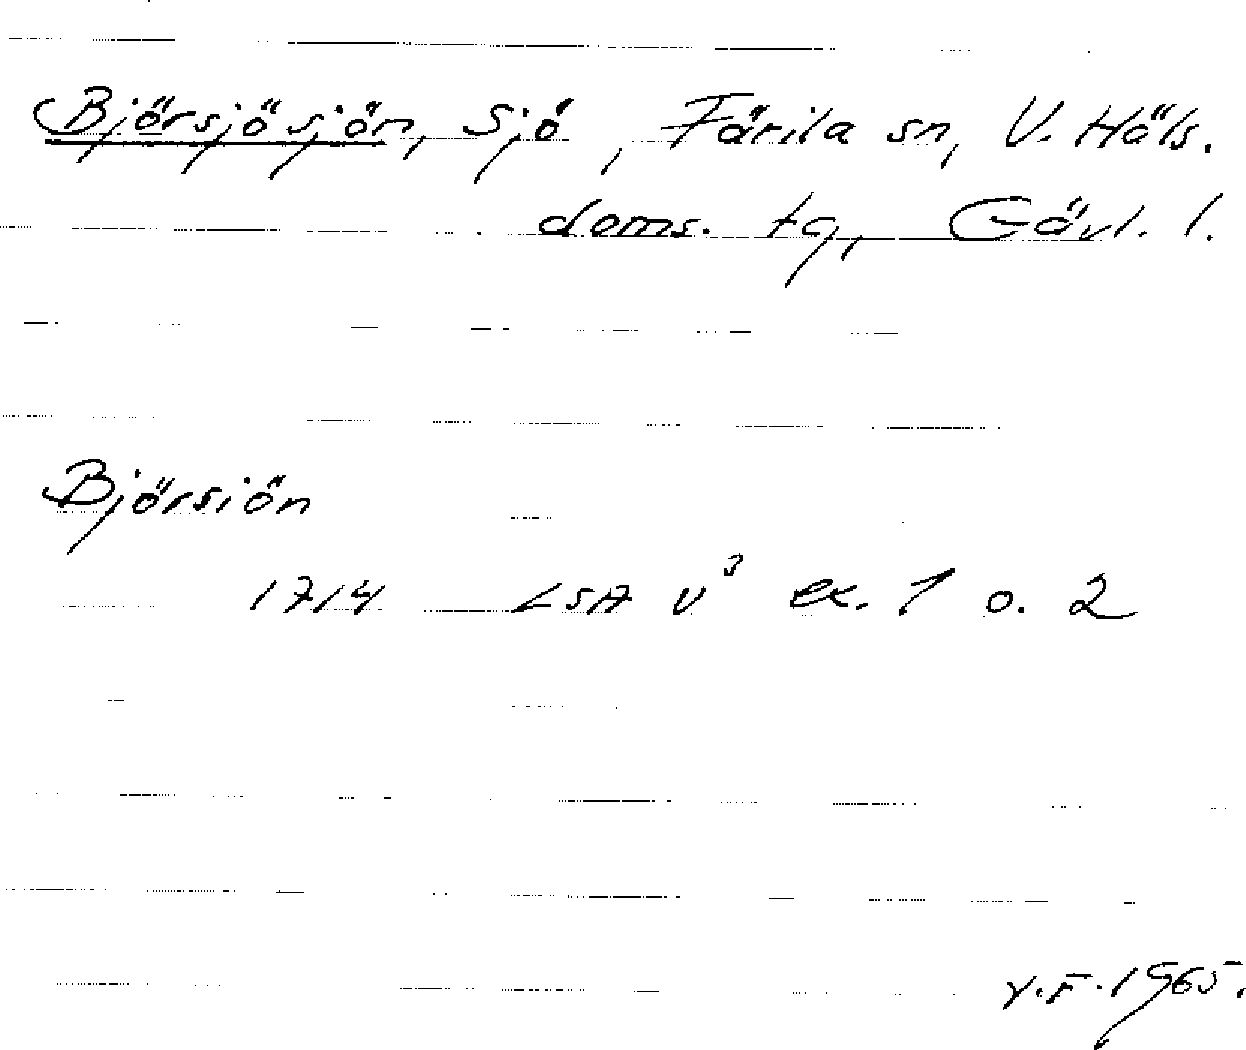 Björsjösjön, Sjö, Färila sn, V. Häls.
doms. tg, Gävl. l.
Björsiön
1714 LSA v³ ex. 1 o. 2
Y.F. 1965.